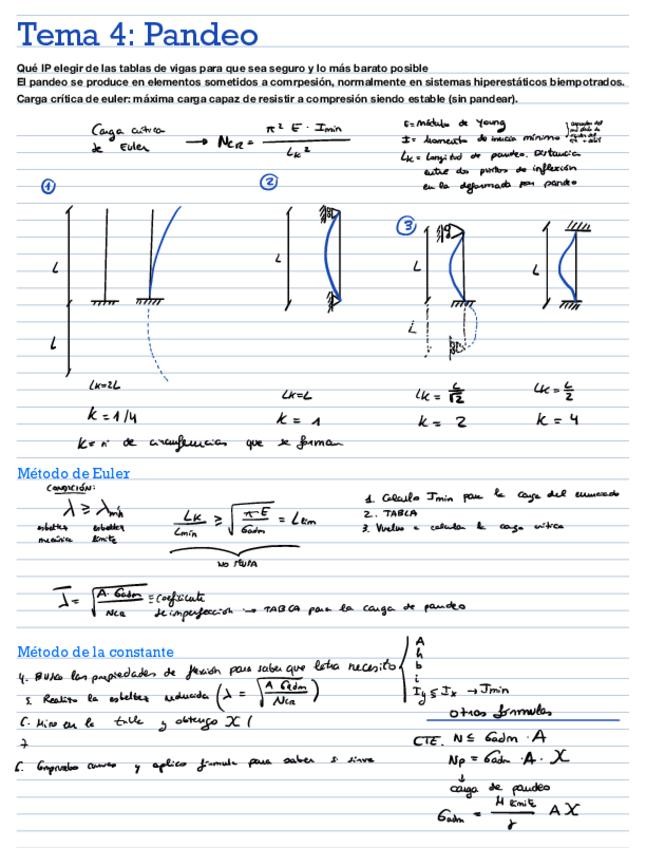 Tema 4: Pandeo
Qué IP elegir de las tablas de vigas para que sea seguro y lo más barato posible
El pandeo se produce en elementos sometidos a comrpesión, normalmente en sistemas hiperestáticos biempotrados.
Carga crítica de euler: máxima carga capaz de resistir a compresión siendo estable (sin pandear).
Carga crítica de Euler → N_CR = π² E · Imin / L_K²
E = módulo de Young
I = Momento de inercia mínimo
L_K = longitud de pandeo. Distancia
entre dos puntos de inflexión
en la deformada por pandeo
① ② ③
L L L L
L L
LK=2L LK=L LK = L/√2 LK = L/2
K = 1/4 K = 1 K = 2 K = 4
K = nº de circunferencias que se forman
Método de Euler
CONDICIÓN:
λ ≥ λ
esbeltez mecánica esbeltez límite
1. Calculo Imin para la carga del enunciado
2. TABLA
3. Vuelvo a calcular la carga crítica
A · σadm / NCR = Coeficiente
de imperfección → TABLA para la carga de pandeo
Método de la constante
4. Busco las propiedades de flexión para saber que letra necesito
A
h
b
i
Iy ≤ Ix → Imin
5. Realizo la esbeltez reducida (λ = √(A σadm / NCR))
6. Miro en la tabla y obtengo X (
7
6. Compruebo curvas y aplico fórmula para saber si sirve
otras fórmulas
CTE. N ≤ σadm · A
Np = σadm · A · X
↓
carga de pandeo